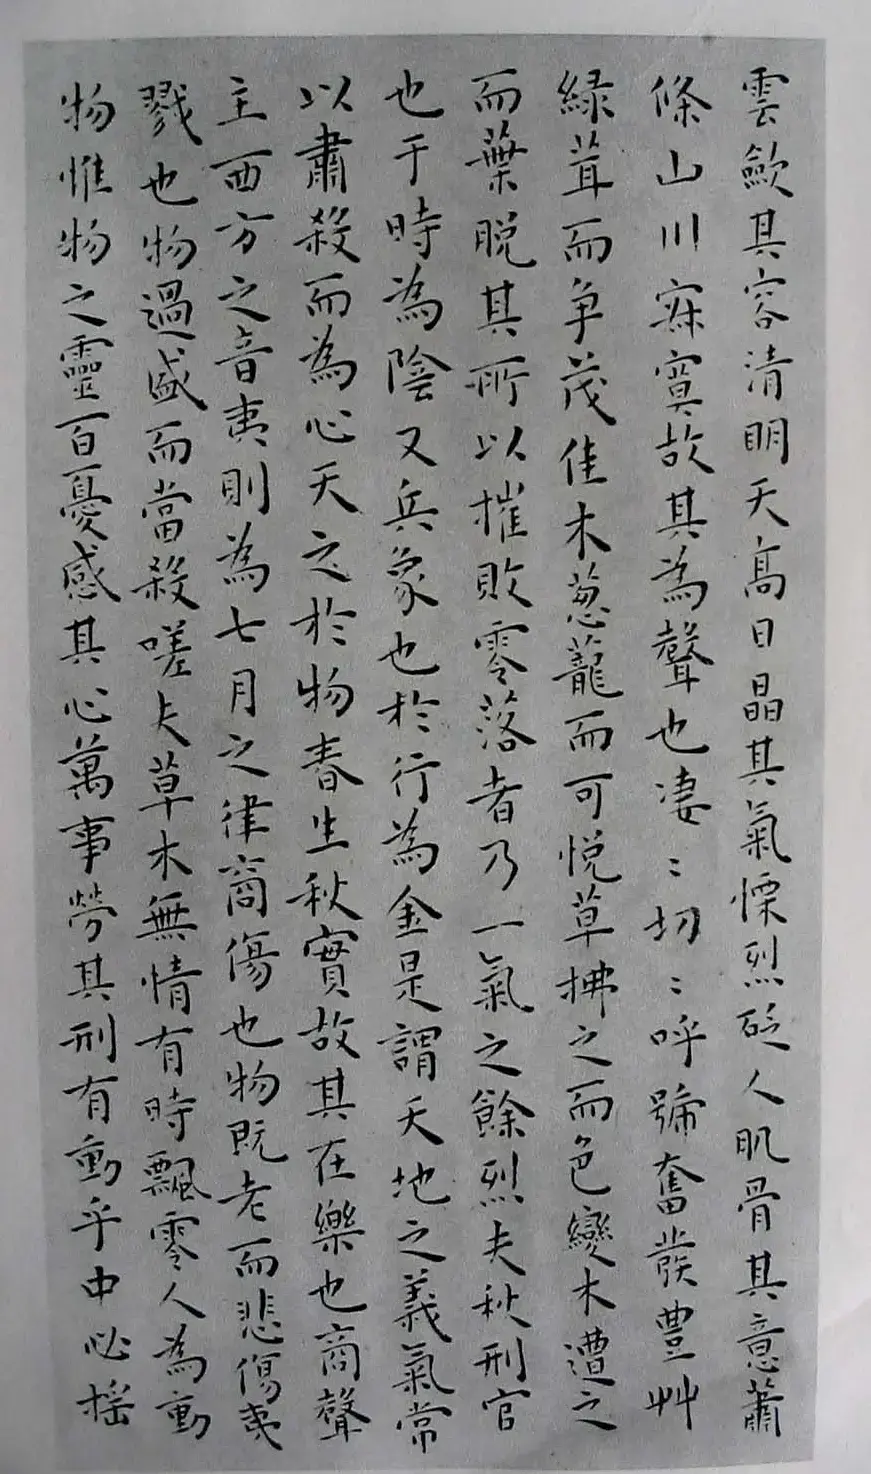 雲歛其容清明天高日晶其氣慄烈砭人肌骨其意蕭
條山川寂寞故其為聲也凄〻切〻呼號奮發豊艸
緑茸而争茂佳木葱蘢而可悦草拂之而色變木遭之
而葉脱其所以摧敗零落者乃一氣之餘烈夫秋刑官
也于時為陰又兵象也於行為金是謂天地之義氣常
以肅殺而為心天之於物春生秋實故其在樂也商聲
主西方之音夷則為七月之律商傷也物既老而悲傷夷
戮也物過盛而當殺嗟夫草木無情有時飄零人為動
物惟物之靈百憂感其心萬事勞其刑有動乎中必揺